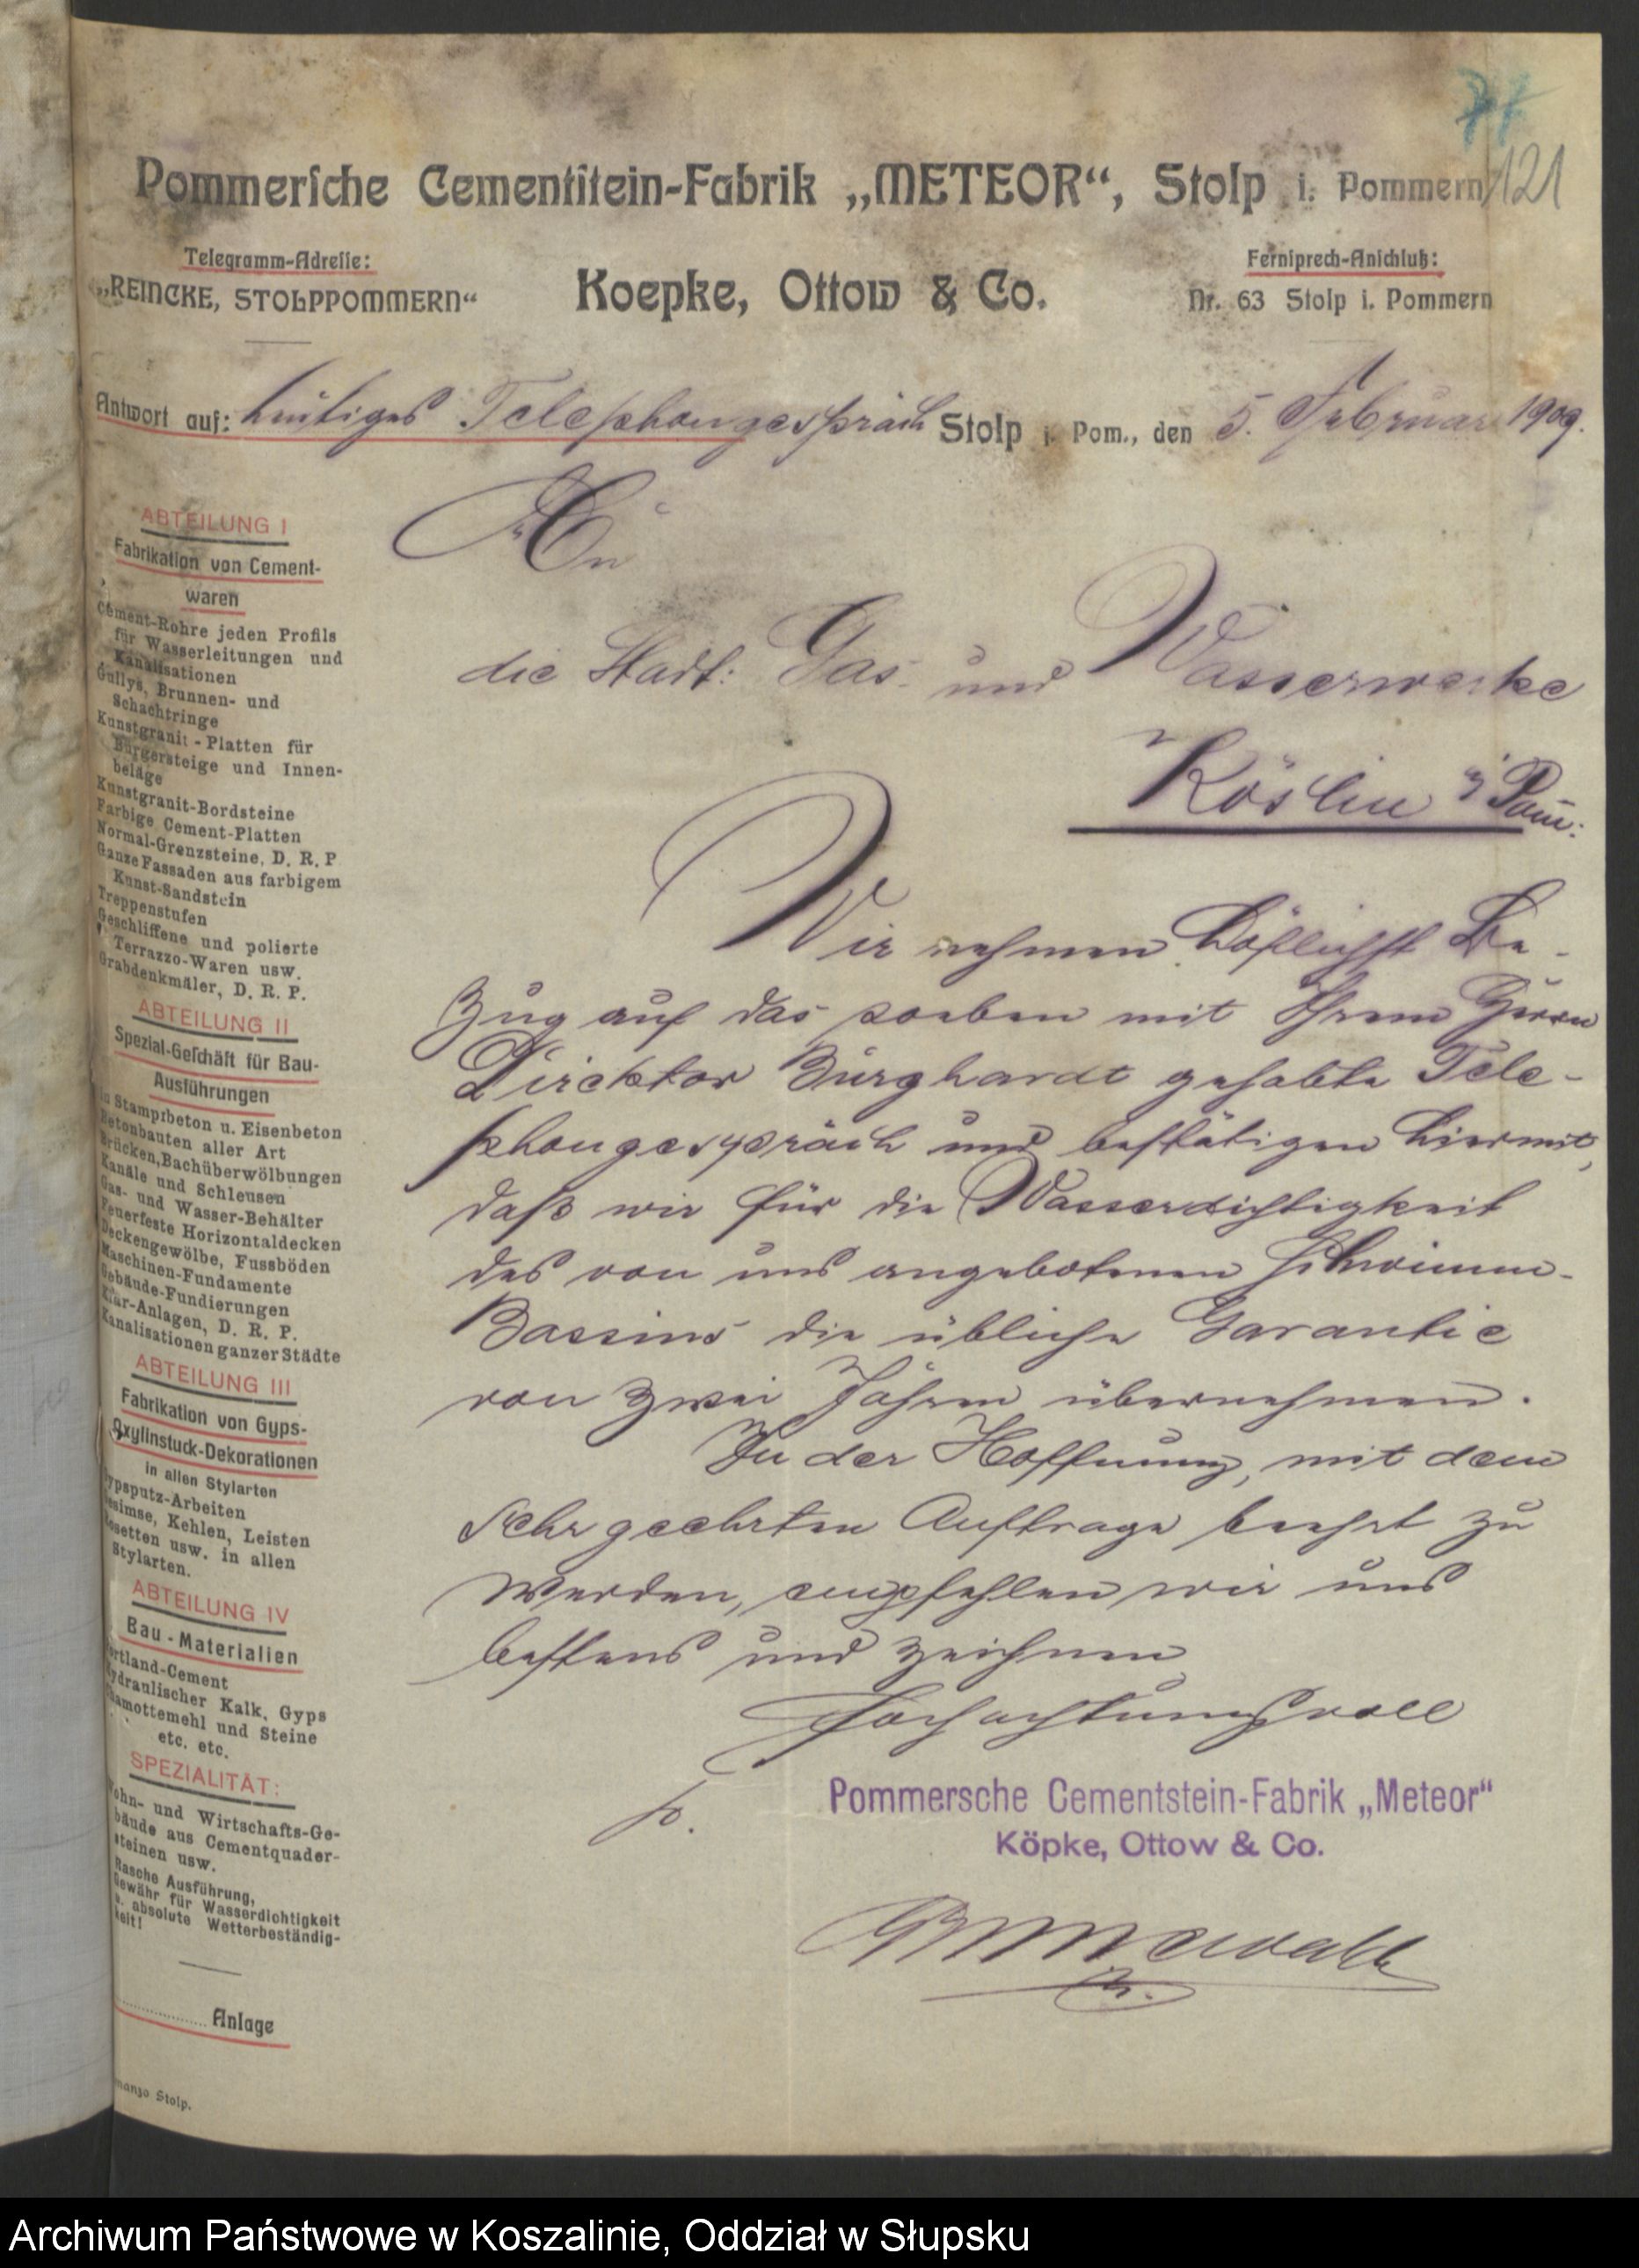 77
121
Pommersche Cementstein-Fabrik „METEOR“, Stolp i. Pommern
Telegramm-Adresse:
„REINCKE, STOLPPOMMERN“
Koepke, Ottow & Co.
Fernsprech-Anschluß:
Nr. 63 Stolp i. Pommern
Antwort auf: heutiges Telephongespräch Stolp i. Pom., den 5. Februar 1909.
ABTEILUNG I
Fabrikation von Cement-
waren
Cement-Rohre jeden Profils
für Wasserleitungen und
Kanalisationen
Gullys, Brunnen- und
Schachtringe
Kunstgranit-Platten für
Bürgersteige und Innen-
beläge
Kunstgranit-Bordsteine
Farbige Cement-Platten
Normal-Grenzsteine, D. R. P
Ganze Fassaden aus farbigem
Kunst-Sandstein
Treppenstufen
Geschliffene und polierte
Terrazzo-Waren usw.
Grabdenkmäler, D. R. P.
ABTEILUNG II
Spezial-Geschäft für Bau-
Ausführungen
in Stampfbeton u. Eisenbeton
Betonbauten aller Art
Brücken, Bachüberwölbungen
Kanäle und Schleusen
Gas- und Wasser-Behälter
Feuerfeste Horizontaldecken
Deckengewölbe, Fussböden
Maschinen-Fundamente
Gebäude-Fundierungen
Klär-Anlagen, D. R. P.
Kanalisationen ganzer Städte
ABTEILUNG III
Fabrikation von Gyps-
Oxylinstuck-Dekorationen
in allen Stylarten
Gypsputz-Arbeiten
Gesimse, Kehlen, Leisten
Rosetten usw. in allen
Stylarten.
ABTEILUNG IV
Bau-Materialien
Portland-Cement
Hydraulischer Kalk, Gyps
Chamottemehl und Steine
etc. etc.
SPEZIALITÄT:
Wohn- und Wirtschafts-Ge-
bäude aus Cementquader-
steinen usw.
Rasche Ausführung,
Gewähr für Wasserdichtigkeit
u. absolute Wetterbeständig-
keit!
Anlage
Stolp.
An
die Stadt: Gas- und Wasserwerke
Köslin i/ Pom:
Wir nehmen höflichst Be-
zug auf das soeben mit Ihrem Herrn
Direktor Burghardt gehabte Tele-
phongespräch und bestätigen hiermit,
daß wir für die Wasserdichtigkeit
des von uns angebotenen Schwimm-
Bassins die übliche Garantie
von zwei Jahren übernehmen.
In der Hoffnung, mit dem
sehr geehrten Auftrage beehrt zu
werden, empfehlen wir uns
bestens und zeichnen
Hochachtungsvoll
p.
Pommersche Cementstein-Fabrik „Meteor“
Köpke, Ottow & Co.
Archiwum Państwowe w Koszalinie, Oddział w Słupsku